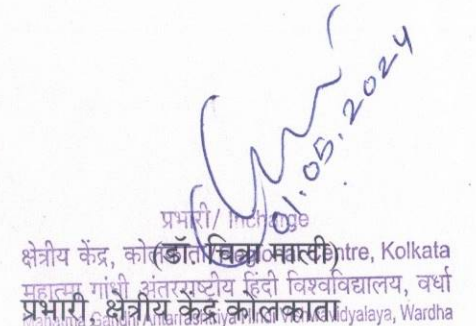 01.05.2024
प्रभारी/ Incharge
(डॉ. चित्रा माली)
क्षेत्रीय केंद्र, कोलकाता Centre, Kolkata
महात्मा गांधी अंतरराष्ट्रीय हिंदी विश्वविद्यालय, वर्धा
प्रभारी, क्षेत्रीय केंद्र कोलकाता
Gandhi Antarrashtriya Hindi Vishwavidyalaya, Wardha